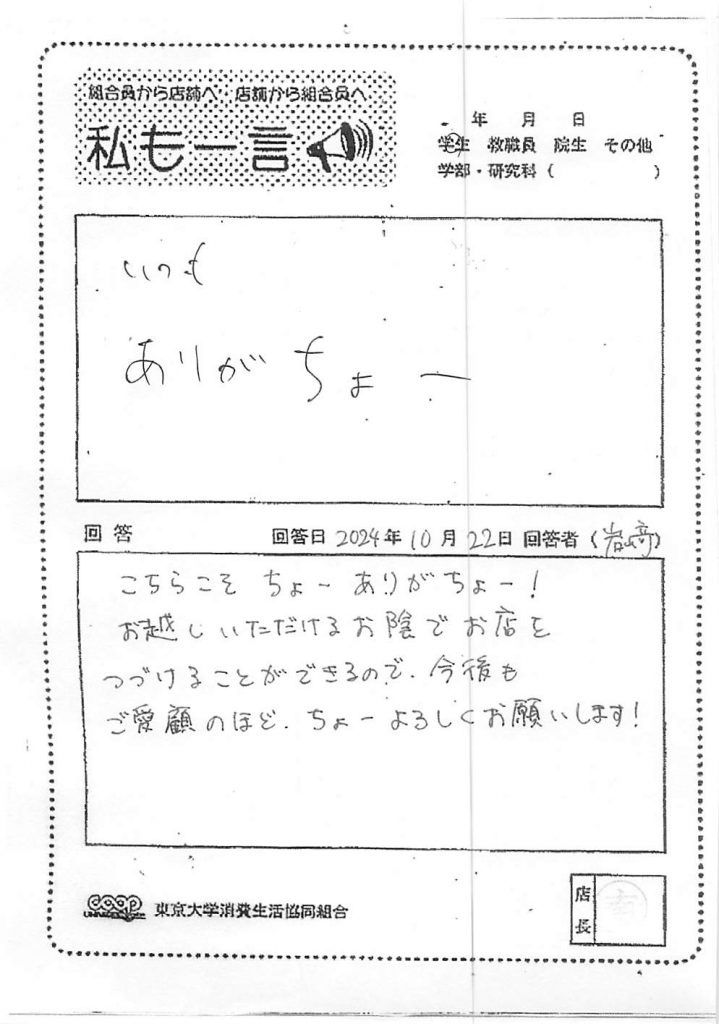 組合員から店舗へ 店舗から組合員へ
私も一言
年 月 日
学生 教職員 院生 その他
学部・研究科 ( )
いつも
ありがちょー
回答 回答日 2024年 10月 22日 回答者 (岩崎)
こちらこそ ちょー ありがちょー!
お越しいただけるお陰でお店を
つづけることができるので、今後も
ご愛顧のほど、ちょーよろしくお願いします!
coop 東京大学消費生活協同組合
店長